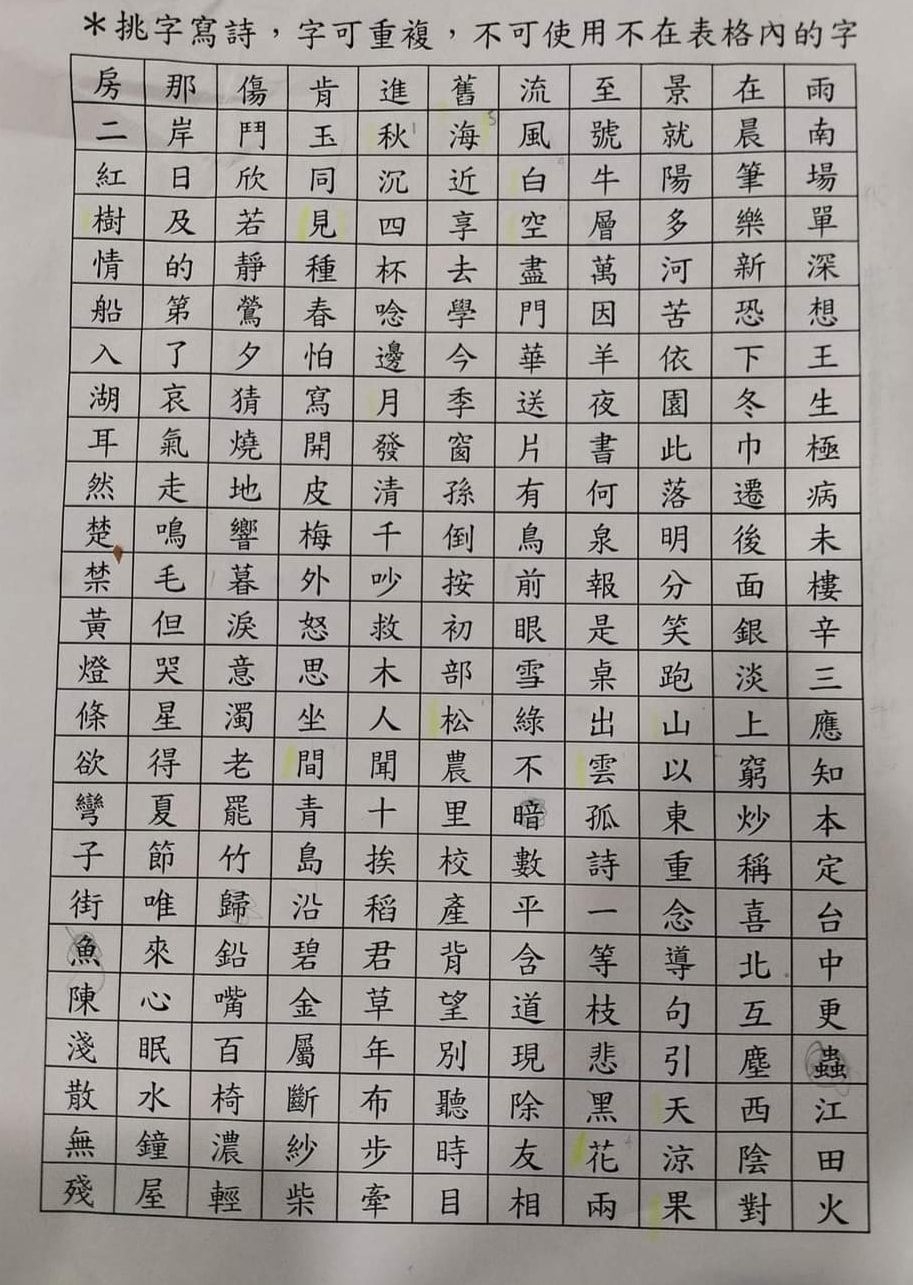 *挑字寫詩,字可重複,不可使用不在表格內的字
房 那 傷 肯 進 舊 流 至 景 在 雨
二 岸 鬥 玉 秋 海 風 號 就 晨 南
紅 日 欣 同 沉 近 白 牛 陽 筆 場
樹 及 若 見 四 享 空 層 多 樂 單
情 的 靜 種 杯 去 盡 萬 河 新 深
船 第 鶯 春 唸 學 門 因 苦 恐 想
入 了 夕 怕 邊 今 華 羊 依 下 王
湖 哀 猜 寫 月 季 送 夜 園 冬 生
耳 氣 燒 開 發 窗 片 書 此 巾 極
然 走 地 皮 清 孫 有 何 落 遷 病
楚 鳴 響 梅 千 倒 鳥 泉 明 後 未
禁 毛 暮 外 吵 按 前 報 分 面 樓
黃 但 淚 怒 救 初 眼 是 笑 銀 辛
燈 哭 意 思 木 部 雪 桌 跑 淡 三
條 星 濁 坐 人 松 綠 出 山 上 應
欲 得 老 間 聞 農 不 雲 以 窮 知
彎 夏 罷 青 十 里 暗 孤 東 炒 本
子 節 竹 島 挨 校 數 詩 重 稱 定
街 唯 歸 沿 稻 產 平 一 念 喜 台
魚 來 鉛 碧 君 背 含 等 導 北 中
陳 心 嘴 金 草 望 道 枝 句 互 更
淺 眠 百 屬 年 別 現 悲 引 塵 蟲
散 水 椅 斷 布 聽 除 黑 天 西 江
無 鐘 濃 紗 步 時 友 花 涼 陰 田
殘 屋 輕 柴 牽 目 相 兩 果 對 火